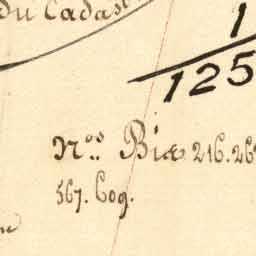 du Cadast
1
125
N.os Bis 216. 26
567. 609.